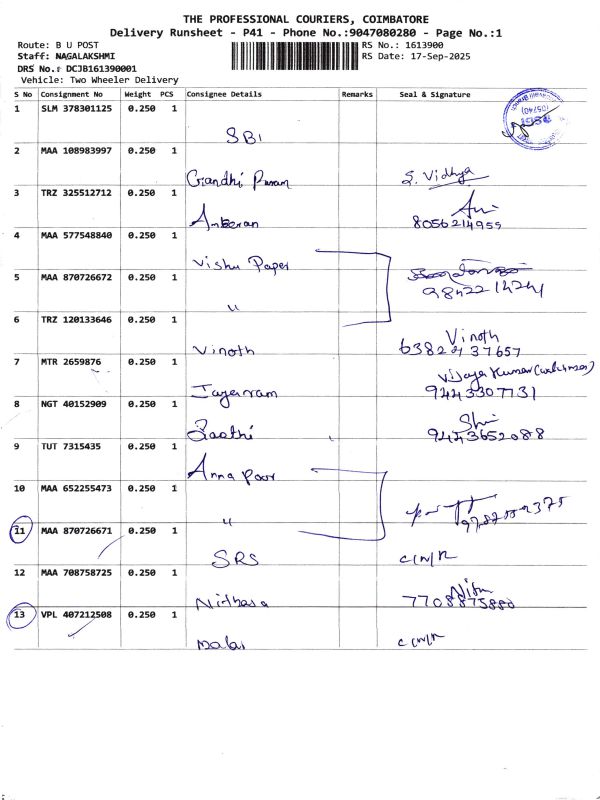 THE PROFESSIONAL COURIERS, COIMBATORE
Delivery Runsheet - P41 - Phone No.:9047080280 - Page No.:1
Route: B U POST
RS No.: 1613900
Staff: NAGALAKSHMI
RS Date: 17-Sep-2025
DRS No.: DCJB161390001
Vehicle: Two Wheeler Delivery
S No Consignment No Weight PCS Consignee Details Remarks Seal & Signature
1 SLM 378301125 0.250 1 SBI
2 MAA 108983997 0.250 1 Gandhi Puram S. Vidhya
3 TRZ 325512712 0.250 1 8056214955
4 MAA 577548840 0.250 1 Vishu Paper
5 MAA 870726672 0.250 1 "
6 TRZ 120133646 0.250 1 Vinoth Vinoth
7 MTR 2659876 0.250 1 Jayaram Vijaya Kumar
9443307731
8 NGT 40152909 0.250 1 9443652088
9 TUT 7315435 0.250 1 Anna Poor
10 MAA 652255473 0.250 1 "
11 MAA 870726671 0.250 1 SRS C/N/R
12 MAA 708758725 0.250 1 7708875880
13 VPL 407212508 0.250 1 Malar C/N/R